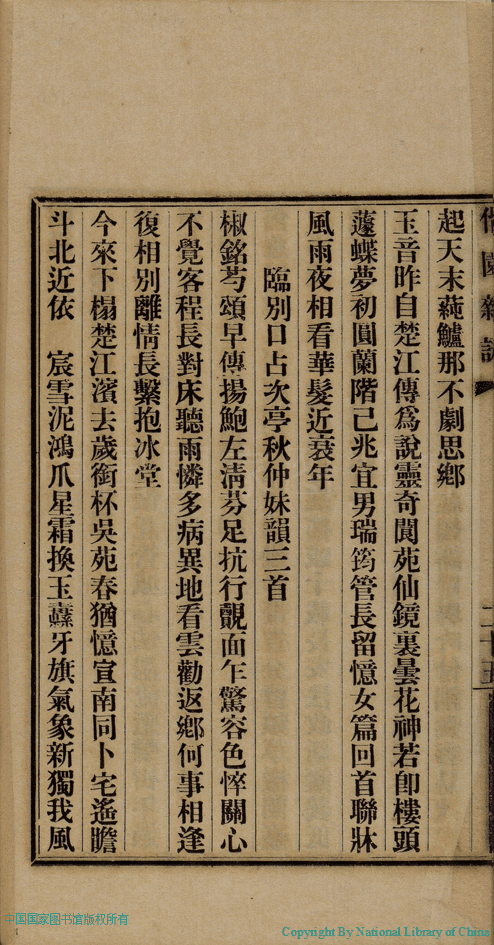 園雜詠
二十五
起天末蒓鱸那不劇思鄉
玉音昨自楚江傳爲說靈奇閬苑仙鏡裏曇花神若卽樓頭
蘧蝶夢初圓蘭階已兆宜男瑞筠管長留憶女篇回首聯牀
風雨夜相看華髮近衰年
臨別口占次亭秋仲妹韻三首
椒銘芍頌早傳揚鮑左淸芬足抗行覿面乍驚容色悴關心
不覺客程長對床聽雨憐多病異地看雲勸返鄉何事相逢
復相別離情長繫抱冰堂
今來下榻楚江濱去歲銜杯吳苑春猶憶宣南同卜宅遙瞻
斗北近依　宸雪泥鴻爪星霜換玉纛牙旗氣象新獨我風
中国国家图书馆版权所有
Copyright By National Library of China